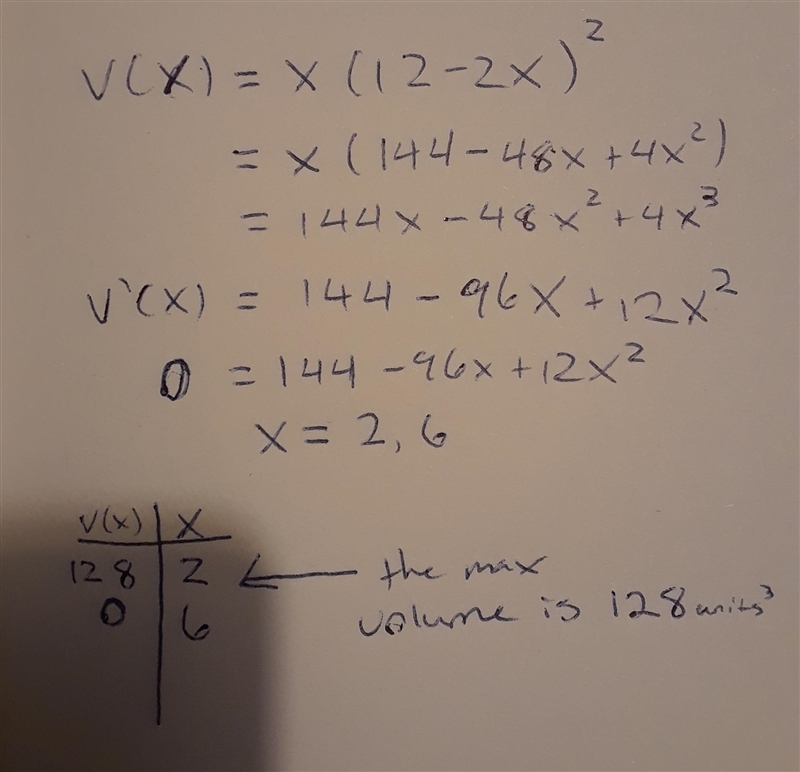 V(X) = x(12-2x)²
= x(144-48x+4x²)
= 144x-48x²+4x³
V'(X) = 144-96X+12x²
0 = 144-96x+12x²
x = 2, 6
V(x) | X
128 | 2 ← the max
0 | 6 volume is 128 units³